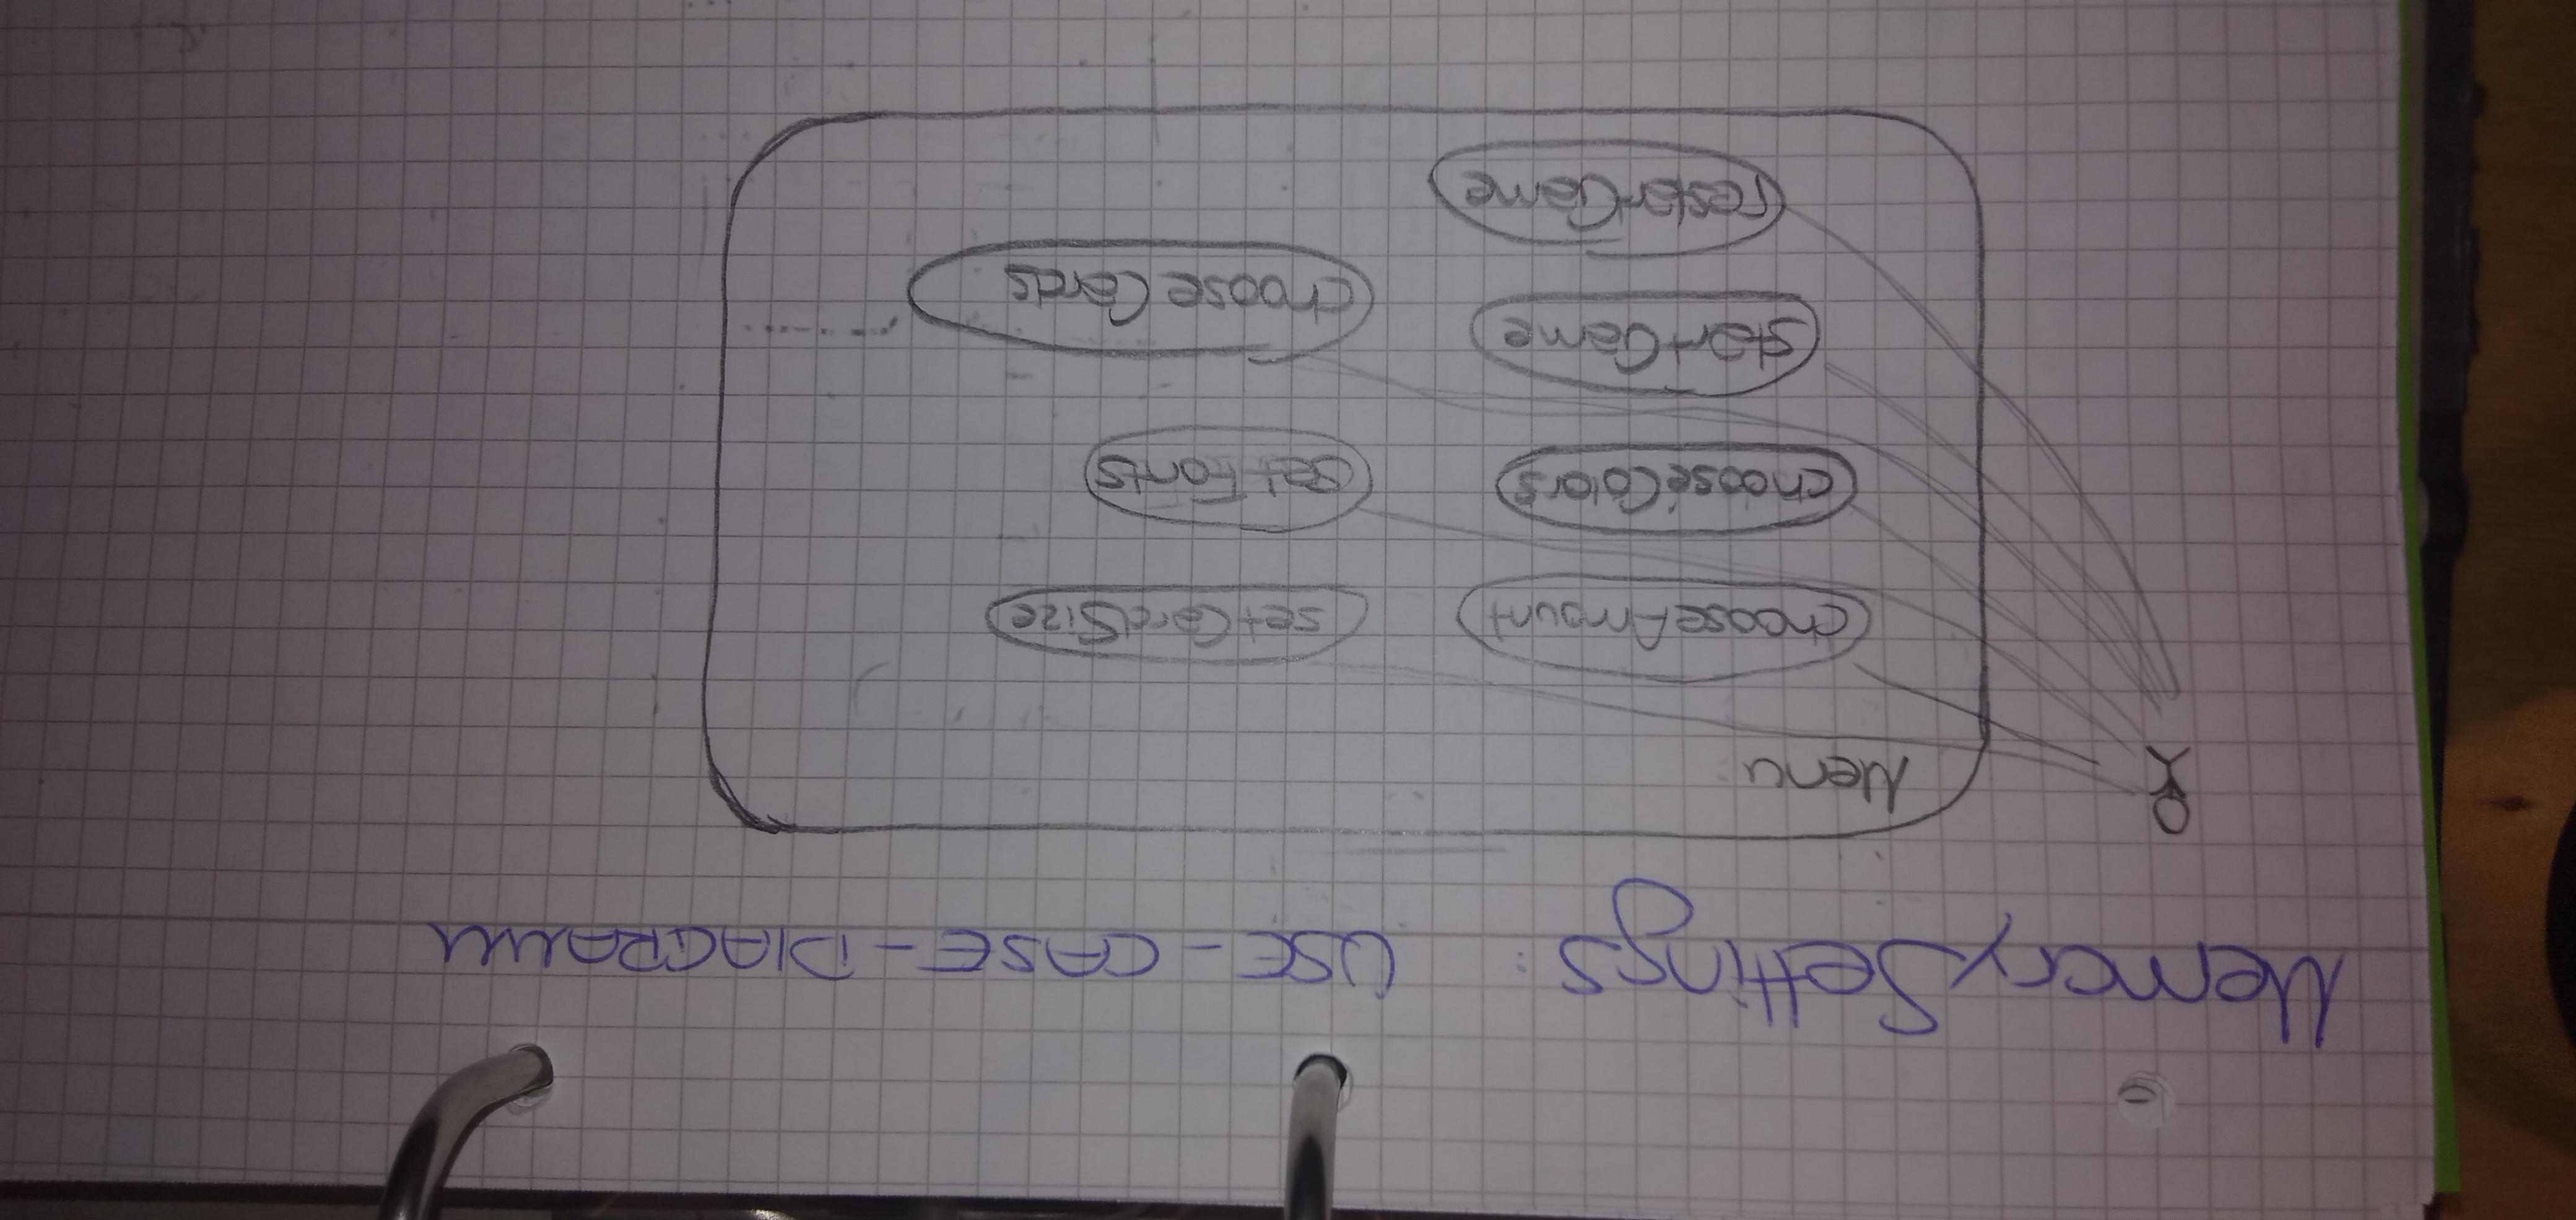 MemorySettings: USE-CASE-DIAGRAMM
Menu
chooseAmount
setCardSize
chooseColors
setFonts
startGame
chooseCards
restartGame